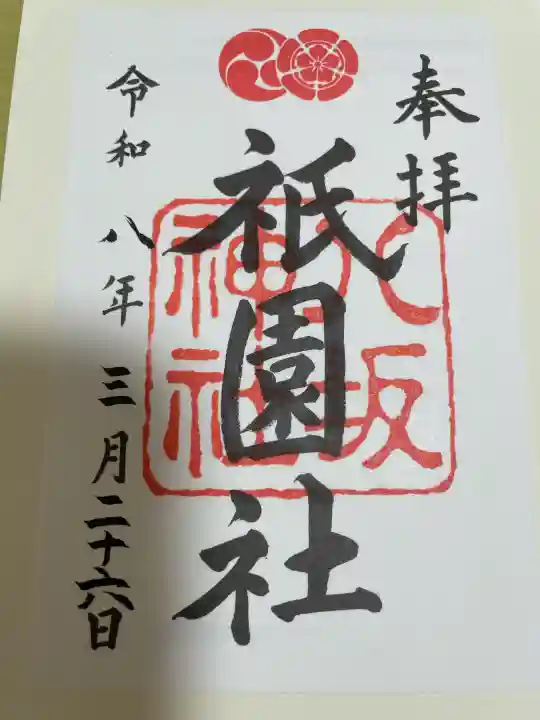 奉拝
祇園社
八坂
神社
令和 八年 三月二十六日